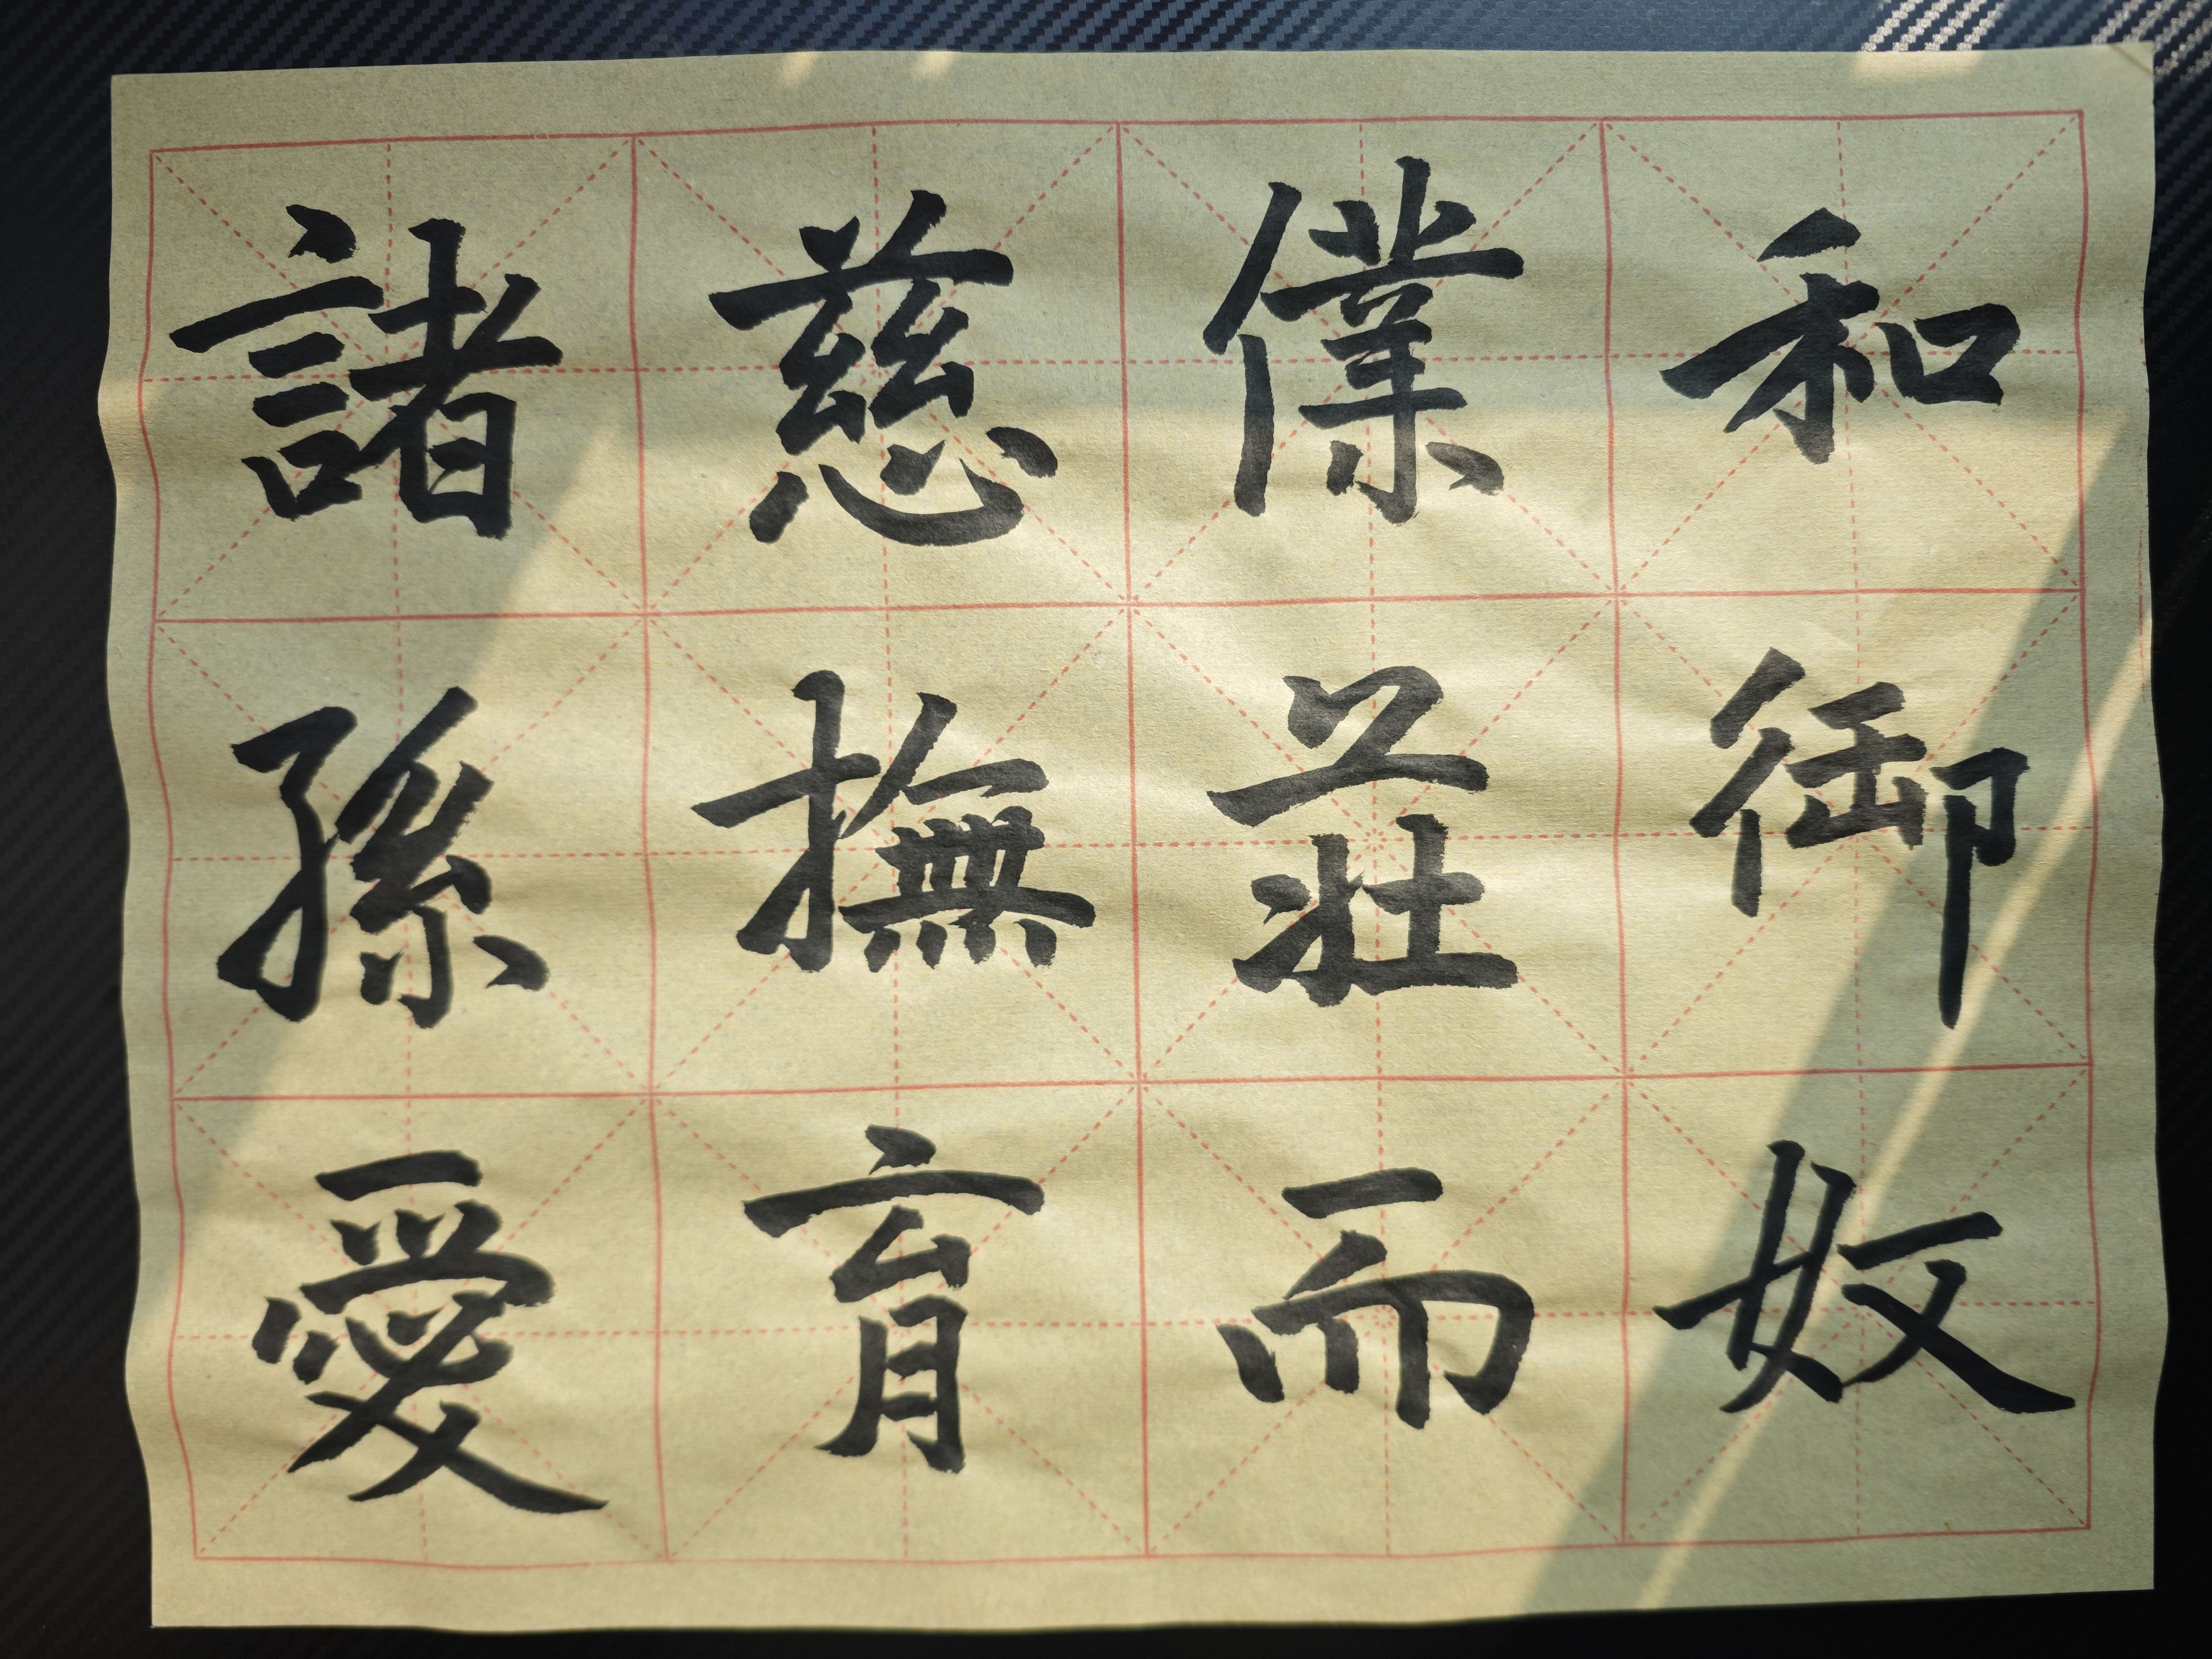 和御奴
僕莊而
慈撫育
諸孫愛